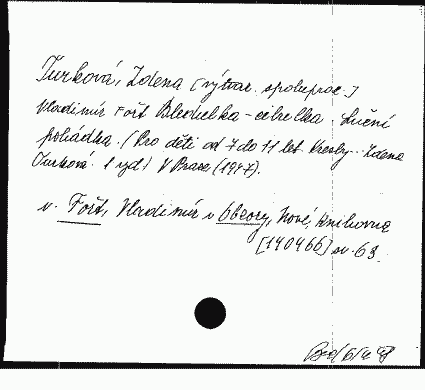 Turková, Zdena [výtvar. spoluprac.]
Vladimír Fořt Bledulka - cibulka. Luční
pohádka. (Pro děti od 7 do 11 let. Kresby. Zdena
Turková. 1 vyd.) V Praze (1947).
v. Fořt, Vladimír v Obzory, Nové, knihovna
[140466] sv. 63.